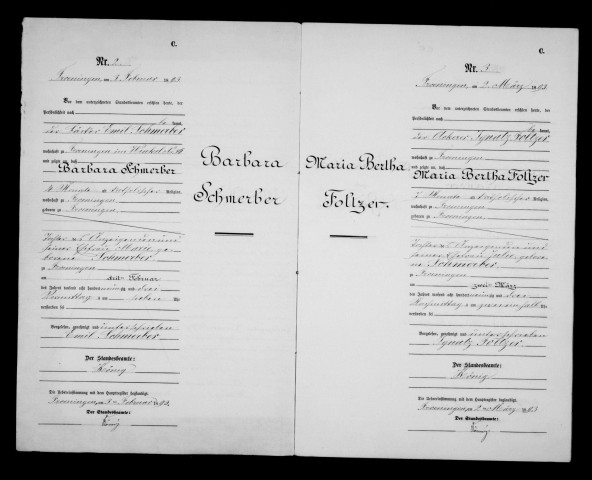 C.
Nr. 2
Froeningen, am 3. Februar 1893
Vor dem unterzeichneten Standesbeamten erschien heute, der
Persönlichkeit nach
der Bäcker Emil Schmerber
wohnhaft zu Froeningen im
und zeigte an, daß
Barbara Schmerber
4 Monate Religion,
wohnhaft zu Froeningen
geboren zu Froeningen
Tochter
seiner Ehefrau Marie ge-
borene Schmerber
zu Froeningen
am drit Februar
des Jahres tausend acht hundert neunzig und drei
Vormittag um Uhr
verstorben sei
Vorgelesen, genehmigt und unterschrieben
Emil Schmerber
Der Standesbeamte:
König
Die Uebereinstimmung mit dem Hauptregister beglaubigt.
Froeningen, am 3. Februar 1893
Der Standesbeamte:
König
Barbara
Schmerber
C.
Nr. 3
Froeningen, am 2. März 1893
Vor dem unterzeichneten Standesbeamten erschien heute, der
Persönlichkeit nach
der Ackerer Ignatz Foltzer
wohnhaft zu Froeningen
und zeigte an, daß
Maria Bertha Foltzer
Monate Religion,
wohnhaft zu Froeningen
geboren zu Froeningen
Tochter
seiner Ehefrau gebore-
ne Schmerber
zu Froeningen
am zwei März
des Jahres tausend acht hundert neunzig und drei
Vormittag um Uhr
verstorben sei
Vorgelesen, genehmigt und unterschrieben
Ignatz Foltzer
Der Standesbeamte:
König
Die Uebereinstimmung mit dem Hauptregister beglaubigt.
Froeningen, am 2. März 1893
Der Standesbeamte:
König
Maria Bertha
Foltzer.